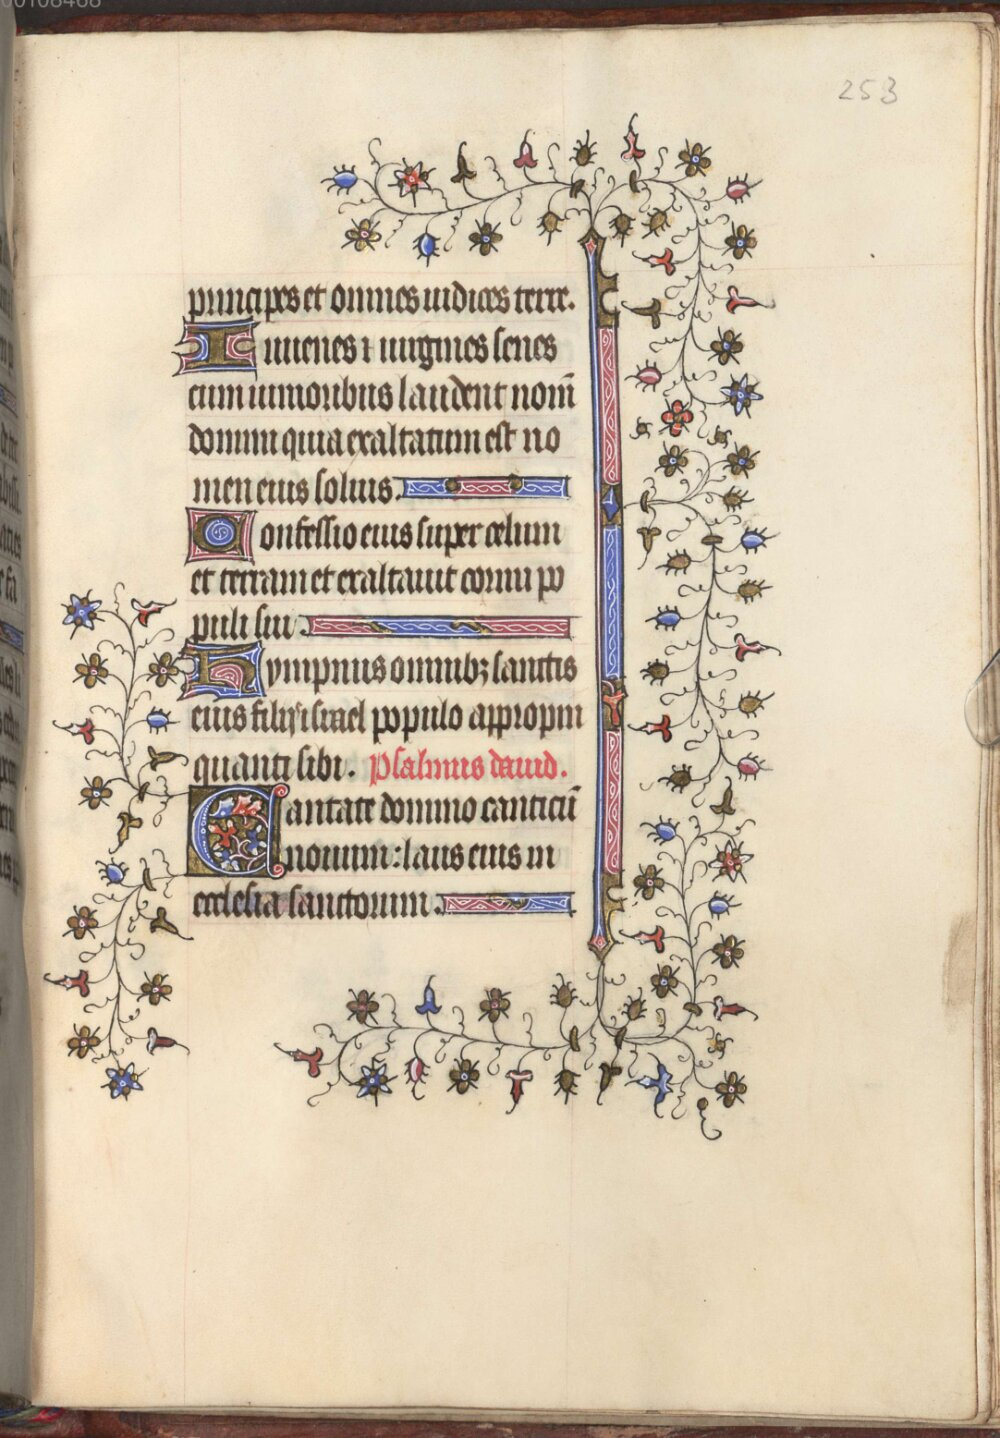 253
principes et omnes iudices terre.
Iuuenes ⁊ uirgines senes
cum iunioribus laudent nom̄
domini quia exaltatum est no
men eius solius.
Confessio eius super celum
et terram et exaltauit cornu po
puli sui.
Hympnus omnibꝫ sanctis
eius filijs israel populo appropin
quanti sibi. Psalmus dauid.
Cantate domino canticū
nouum: laus eius in
ecclesia sanctorum.